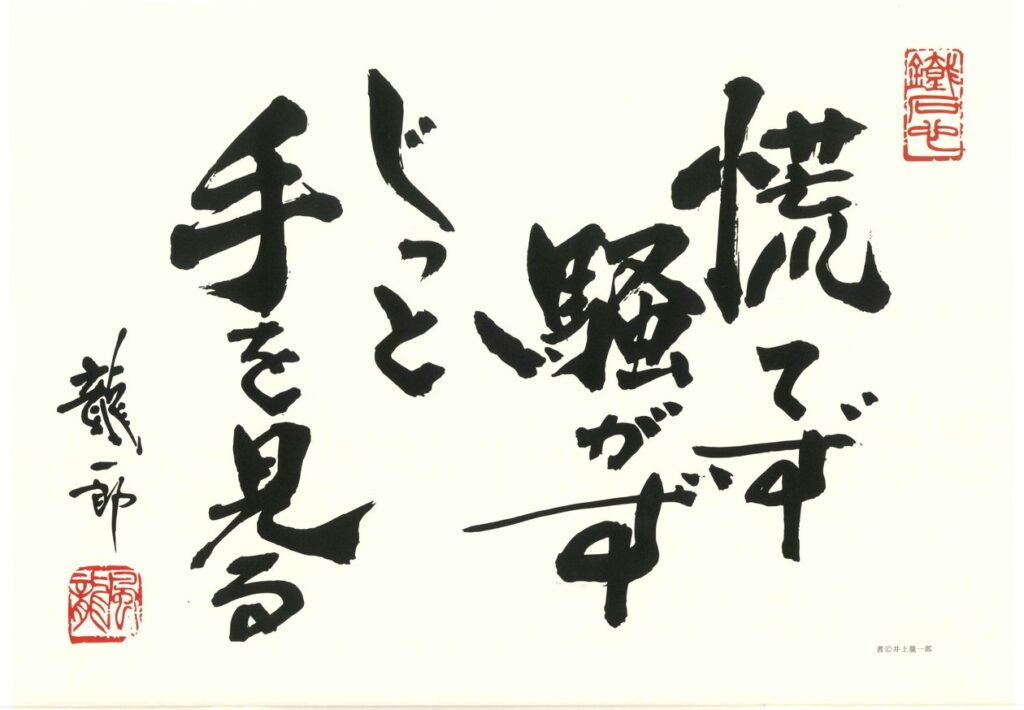 慌てず
騒がず
じっと
手を見る
龍一郎
鐵石也
風龍
書©井上龍一郎